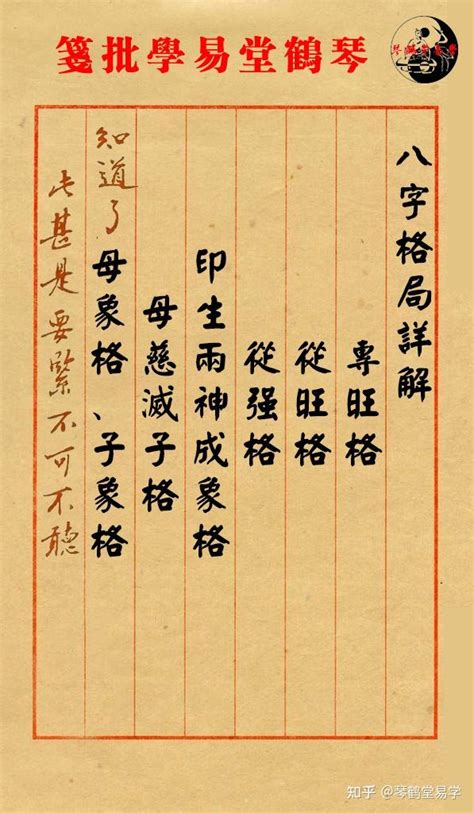 琴鶴堂易學批箋
八字格局詳解
専旺格
從旺格
從强格
印生兩神成象格
母慈滅子格
知道了
母象格、子象格
此甚是要緊不可不聽
知乎 @琴鹤堂易学